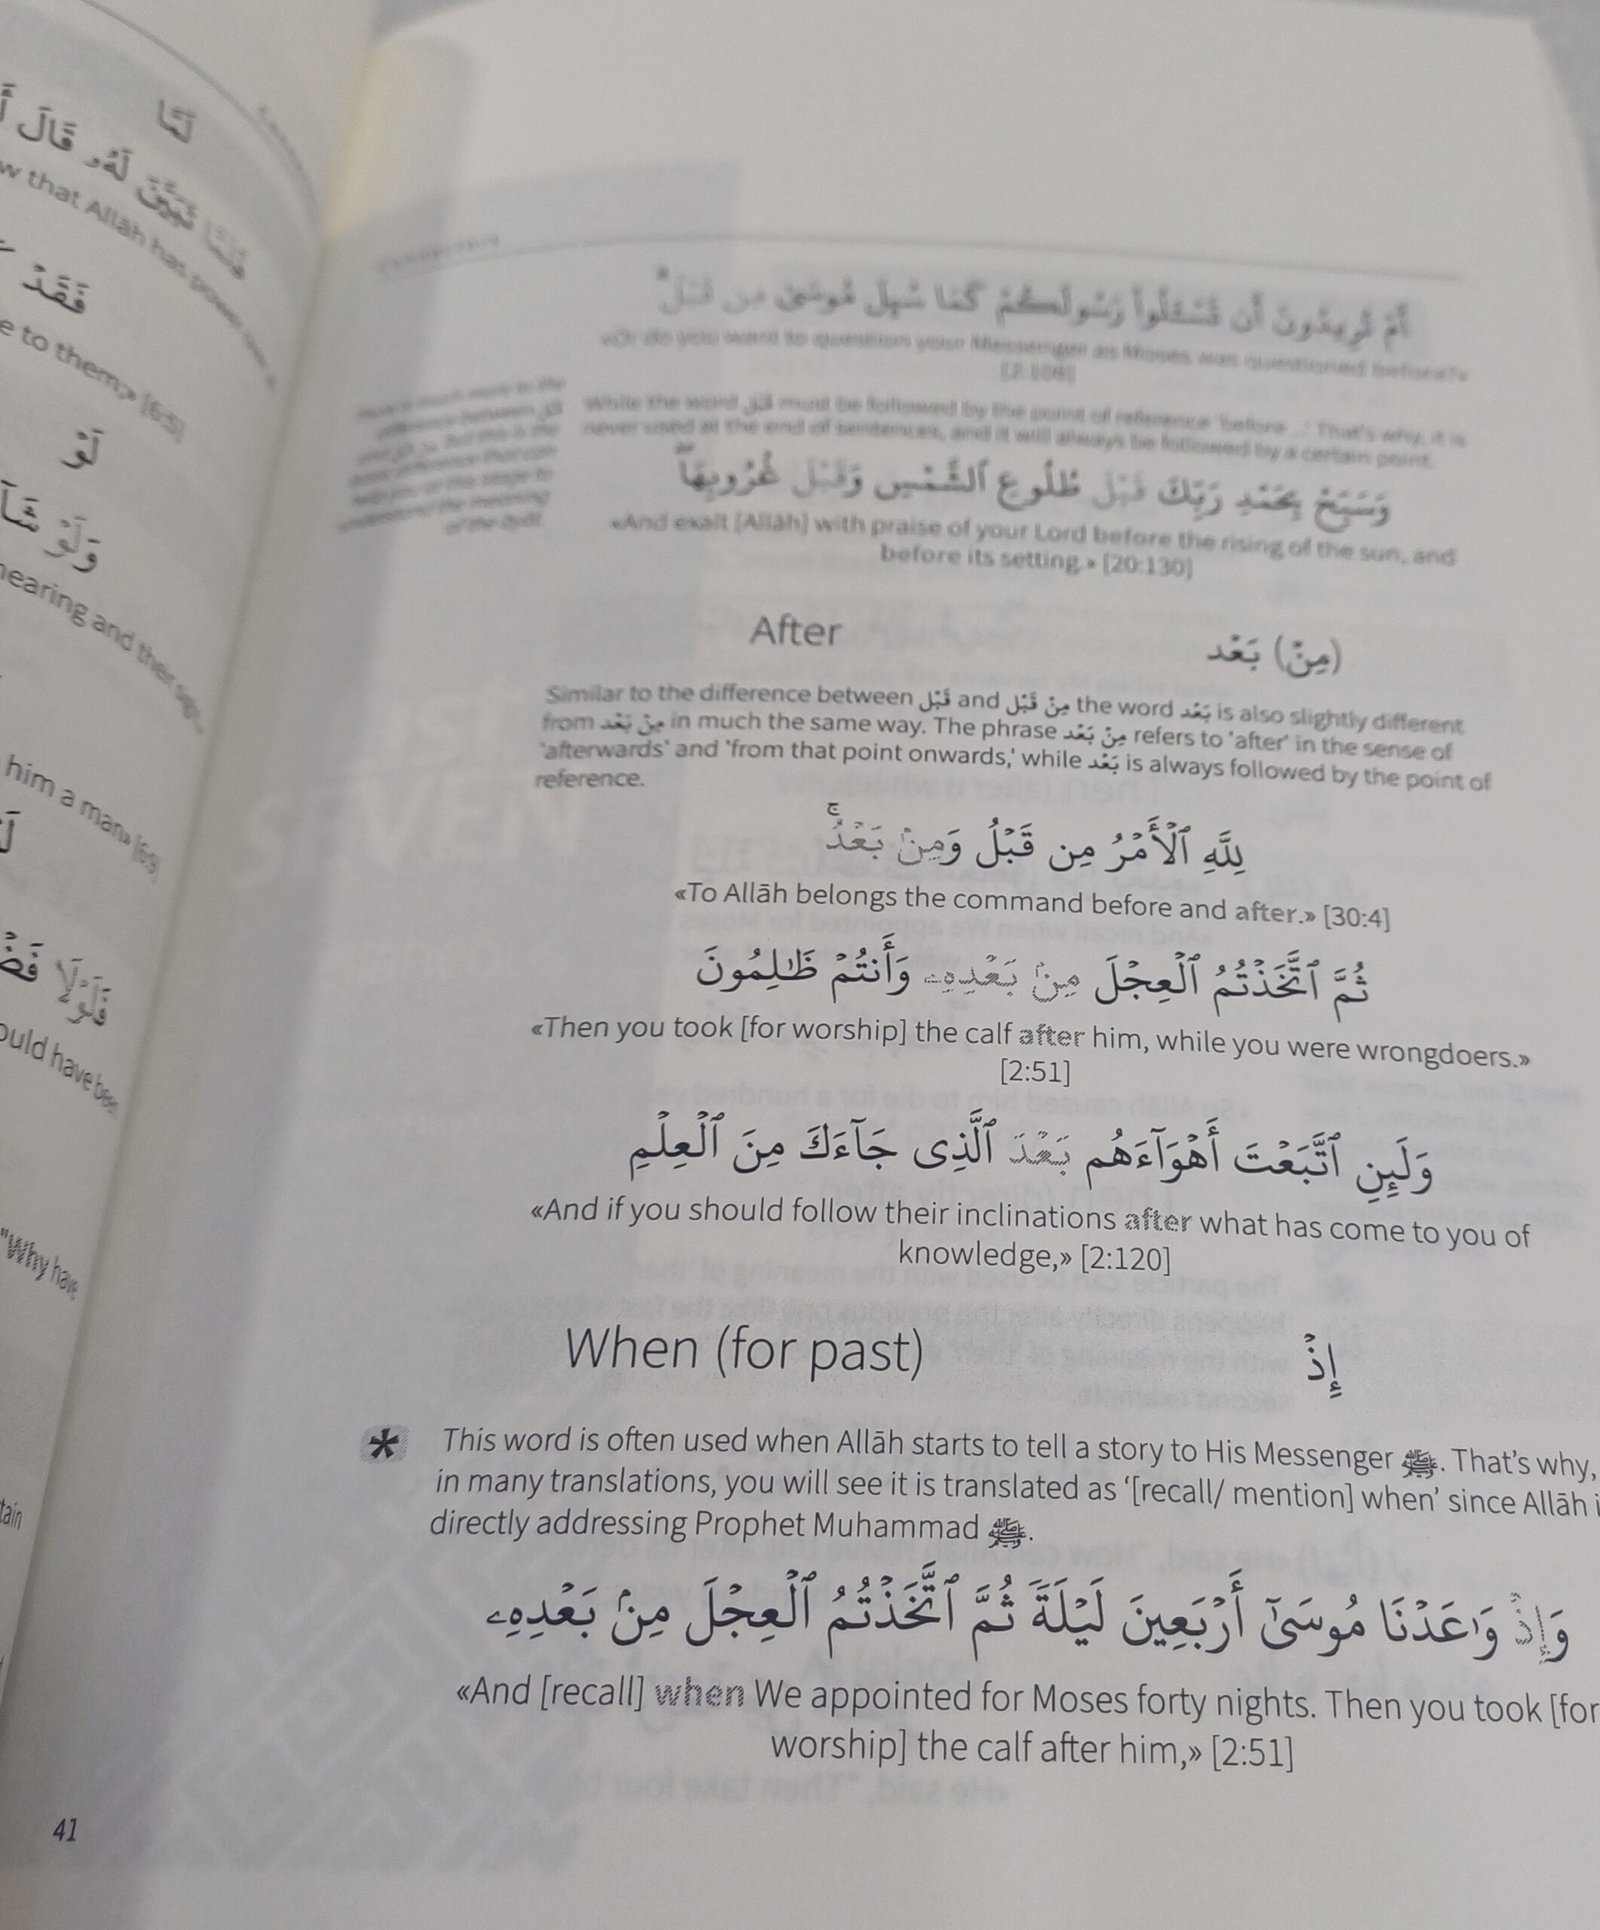 لَمَّا
فَلَمَّا تَبَيَّنَ لَهُۥ قَالَ
w that Allāh has power over
فَقَدْ
e to them,» [6:5]
لَوْ
وَلَوْ شَآ
hearing and their
him a man» [6:9]
فَلَوْلَا فَضْ
ould have been
"Why have
tain
41
أَمْ تُرِيدُونَ أَن تَسْـَٔلُوا۟ رَسُولَكُمْ كَمَا سُئِلَ مُوسَىٰ مِن قَبْلُ ۗ
«Or do you want to question your Messenger as Moses was questioned before?»
[2:108]
There is much more to the
difference between قَبْل
and مِنْ قَبْل, but this is the
basic difference that can
help you at this stage to
understand the meaning
of the āyāt.
While the word قَبْل must be followed by the point of reference 'before ...' That's why, it is
never used at the end of sentences, and it will always be followed by a certain point.
وَسَبِّحْ بِحَمْدِ رَبِّكَ قَبْلَ طُلُوعِ ٱلشَّمْسِ وَقَبْلَ غُرُوبِهَا ۖ
«And exalt [Allāh] with praise of your Lord before the rising of the sun, and
before its setting.» [20:130]
After (مِنْ) بَعْد
Similar to the difference between قَبْل and مِنْ قَبْل the word بَعْد is also slightly different
from مِنْ بَعْد in much the same way. The phrase مِنْ بَعْد refers to 'after' in the sense of
'afterwards' and 'from that point onwards,' while بَعْد is always followed by the point of
reference.
لِلَّهِ ٱلْأَمْرُ مِن قَبْلُ وَمِنۢ بَعْدُ ۚ
«To Allāh belongs the command before and after.» [30:4]
ثُمَّ ٱتَّخَذْتُمُ ٱلْعِجْلَ مِنۢ بَعْدِهِۦ وَأَنتُمْ ظَـٰلِمُونَ
«Then you took [for worship] the calf after him, while you were wrongdoers.»
[2:51]
وَلَئِنِ ٱتَّبَعْتَ أَهْوَآءَهُم بَعْدَ ٱلَّذِى جَآءَكَ مِنَ ٱلْعِلْمِ
«And if you should follow their inclinations after what has come to you of
knowledge,» [2:120]
When (for past) إِذْ
* This word is often used when Allāh starts to tell a story to His Messenger ﷺ. That's why,
in many translations, you will see it is translated as '[recall/ mention] when' since Allāh i
directly addressing Prophet Muhammad ﷺ.
وَإِذْ وَٰعَدْنَا مُوسَىٰٓ أَرْبَعِينَ لَيْلَةً ثُمَّ ٱتَّخَذْتُمُ ٱلْعِجْلَ مِنۢ بَعْدِهِۦ
«And [recall] when We appointed for Moses forty nights. Then you took [for
worship] the calf after him,» [2:51]